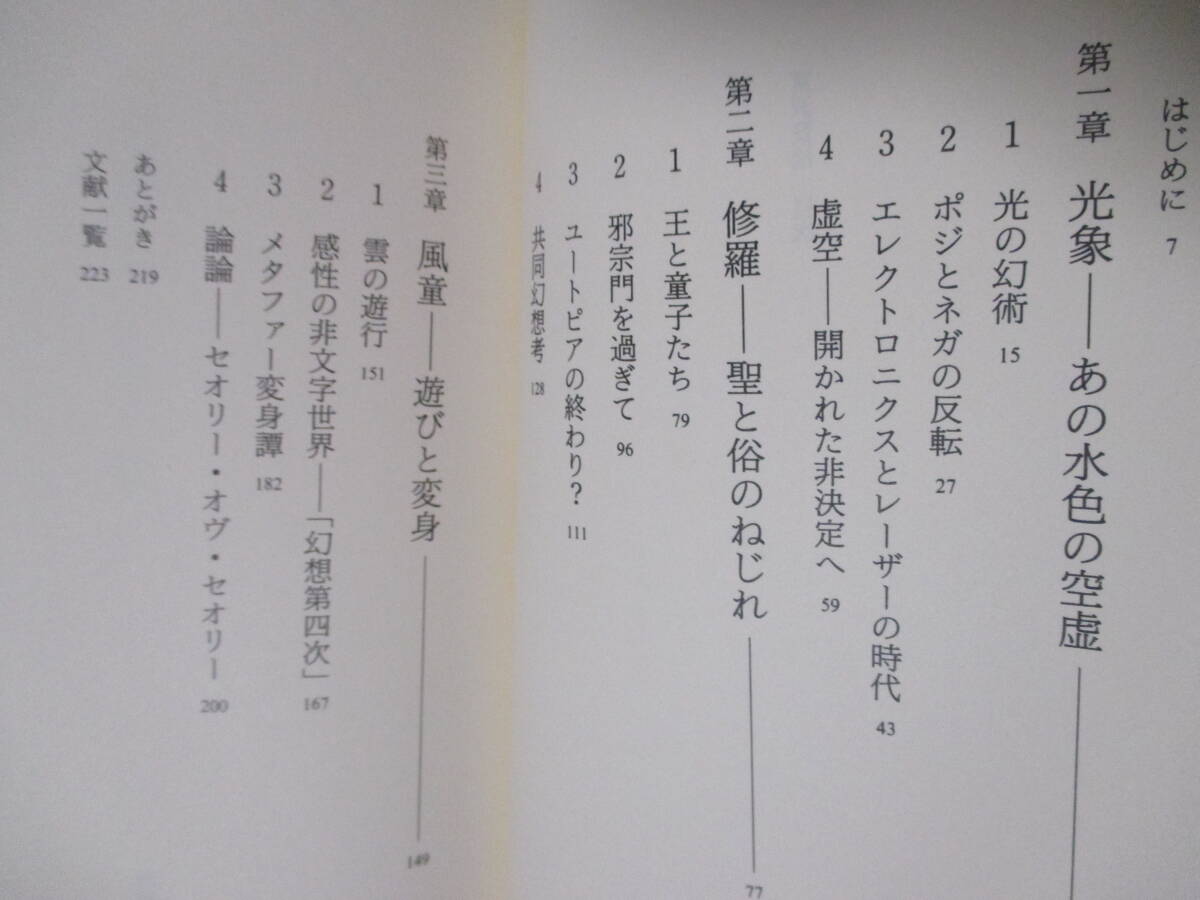 はじめに 7
第一章 光象――あの水色の空虚
1 光の幻術 15
2 ポジとネガの反転 27
3 エレクトロニクスとレーザーの時代 43
4 虚空――開かれた非決定へ 59
第二章 修羅――聖と俗のねじれ 77
1 王と童子たち 79
2 邪宗門を過ぎて 96
3 ユートピアの終わり? 111
4 共同幻想考 128
第三章 風童――遊びと変身 149
1 雲の遊行 151
2 感性の非文字世界――「幻想第四次」 167
3 メタファー変身譚 182
4 論論――セオリー・オヴ・セオリー 200
あとがき 219
文献一覧 223